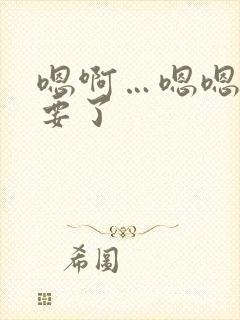 嗯啊…嗯嗯
要了
希圖